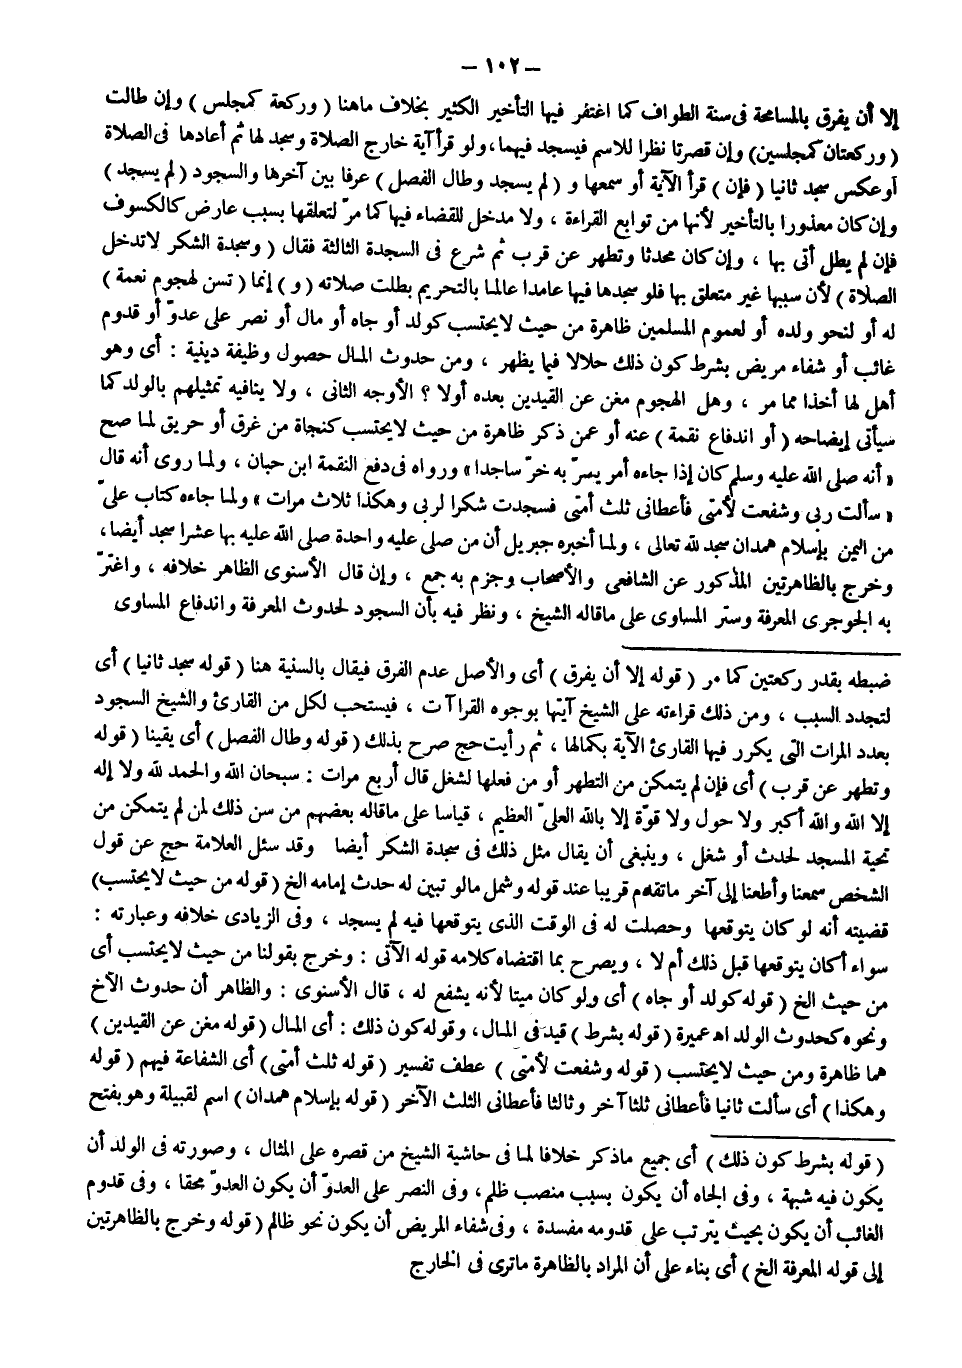 — ١٠٢ —
إلا أن يفرق بالمسامحة فى سنة الطواف كما اغتفر فيها التأخير الكثير بخلاف ماهنا ( وركعة كمجلس ) وإن طالت
( وركعتان كمجلسين) وإن قصرتا نظرا للاسم فيسجد فيهما، ولو قرأ آية خارج الصلاة وسجد لها ثم أعادها فى الصلاة
أوعكس سجد ثانيا ( فإن ) قرأ الآية أو سمعها و ( لم يسجد وطال الفصل ) عرفا بين آخرها والسجود ( لم يسجد )
وإن كان معذورا بالتأخير لأنها من توابع القراءة ، ولا مدخل للقضاء فيها كما مرّ لتعلقها بسبب عارض كالكسوف
فإن لم يطل أتى بها ، وإن كان محدثا وتطهر عن قرب ثم شرع فى السجدة الثالثة فقال ( وسجدة الشكر لاتدخل
الصلاة ) لأن سببها غير متعلق بها فلو سجدها فيها عامدا عالما بالتحريم بطلت صلاته ( و ) إنما ( تسن لهجوم نعمة )
له أو لنحو ولده أو لعموم المسلمين ظاهرة من حيث لايحتسب كولد أو جاه أو مال أو نصر على عدوّ أو قدوم
غائب أو شفاء مريض بشرط كون ذلك حلالا فيما يظهر ، ومن حدوث المال حصول وظيفة دينية : أى وهو
أهل لها أخذا مما مر ، وهل الهجوم مغن عن القيدين بعده أولا ؟ الأوجه الثانى ، ولا ينافيه تمثيلهم بالولد كما
سيأتى إيضاحه ( أو اندفاع نقمة ) عنه أو عمن ذكر ظاهرة من حيث لايحتسب كنجاة من غرق أو حريق لما صح
« أنه صلى الله عليه وسلم كان إذا جاءه أمر يسرّ به خرّ ساجدا» ورواه فى دفع النقمة ابن حبان ، ولما روى أنه قال
« سألت ربى وشفعت لأمتى فأعطانى ثلث أمتى فسجدت شكرا لربى وهكذا ثلاث مرات » ولما جاءه كتاب علىّ
من اليمن بإسلام همدان سجد لله تعالى ، ولما أخبره جبريل أن من صلى عليه واحدة صلى الله عليه بها عشرا سجد أيضا،
وخرج بالظاهرتين المذكور عن الشافعى والأصحاب وجزم به جمع ، وإن قال الأسنوى الظاهر خلافه ، واغترّ
به الجوجرى المعرفة وستر المساوى على ماقاله الشيخ ، ونظر فيه بأن السجود لحدوث المعرفة واندفاع المساوى
ضبطه بقدر ركعتين كما مر ( قوله إلا أن يفرق ) أى والأصل عدم الفرق فيقال بالسنية هنا ( قوله سجد ثانيا ) أى
لتجدد السبب ، ومن ذلك قراءته على الشيخ آيتها بوجوه القراآت ، فيستحب لكل من القارئ والشيخ السجود
بعدد المرات التى يكرر فيها القارئ الآية بكمالها ، ثم رأيت حج صرح بذلك ( قوله وطال الفصل ) أى يقينا ( قوله
وتطهر عن قرب ) أى فإن لم يتمكن من التطهر أو من فعلها لشغل قال أربع مرات : سبحان الله والحمد لله ولا إله
إلا الله والله أكبر ولا حول ولا قوّة إلا بالله العلىّ العظيم ، قياسا على ماقاله بعضهم من سن ذلك لمن لم يتمكن من
تحية المسجد لحدث أو شغل ، وينبغى أن يقال مثل ذلك فى سجدة الشكر أيضا وقد سئل العلامة حج عن قول
الشخص سمعنا وأطعنا إلى آخر ماتقدم قريبا عند قوله وشمل مالو تبين له حدث إمامه الخ ( قوله من حيث لايحتسب)
قضيته أنه لو كان يتوقعها وحصلت له فى الوقت الذى يتوقعها فيه لم يسجد ، وفى الزيادى خلافه وعبارته :
سواء أكان يتوقعها قبل ذلك أم لا ، ويصرح بما اقتضاه كلامه قوله الآتى : وخرج بقولنا من حيث لايحتسب أى
من حيث الخ ( قوله كولد أو جاه ) أى ولو كان ميتا لأنه يشفع له ، قال الأسنوى : والظاهر أن حدوث الأخ
ونحوه كحدوث الولد اه عميرة ( قوله بشرط ) قيد فى المال ، وقوله كون ذلك : أى المال ( قوله مغن عن القيدين )
هما ظاهرة ومن حيث لايحتسب ( قوله وشفعت لأمتى ) عطف تفسير ( قوله ثلث أمتى ) أى الشفاعة فيهم ( قوله
وهكذا ) أى سألت ثانيا فأعطانى ثلثا آخر وثالثا فأعطانى الثلث الآخر ( قوله بإسلام همدان ) اسم لقبيلة وهو بفتح
( قوله بشرط كون ذلك ) أى جميع ماذكر خلافا لما فى حاشية الشيخ من قصره على المثال ، وصورته فى الولد أن
يكون فيه شبهة ، وفى الجاه أن يكون بسبب منصب ظلم، وفى النصر على العدوّ أن يكون العدوّ محقا ، وفى قدوم
الغائب أن يكون بحيث يترتب على قدومه مفسدة ، وفى شفاء المريض أن يكون نحو ظالم ( قوله وخرج بالظاهرتين
إلى قوله المعرفة الخ ) أى بناء على أن المراد بالظاهرة ماترى فى الخارج